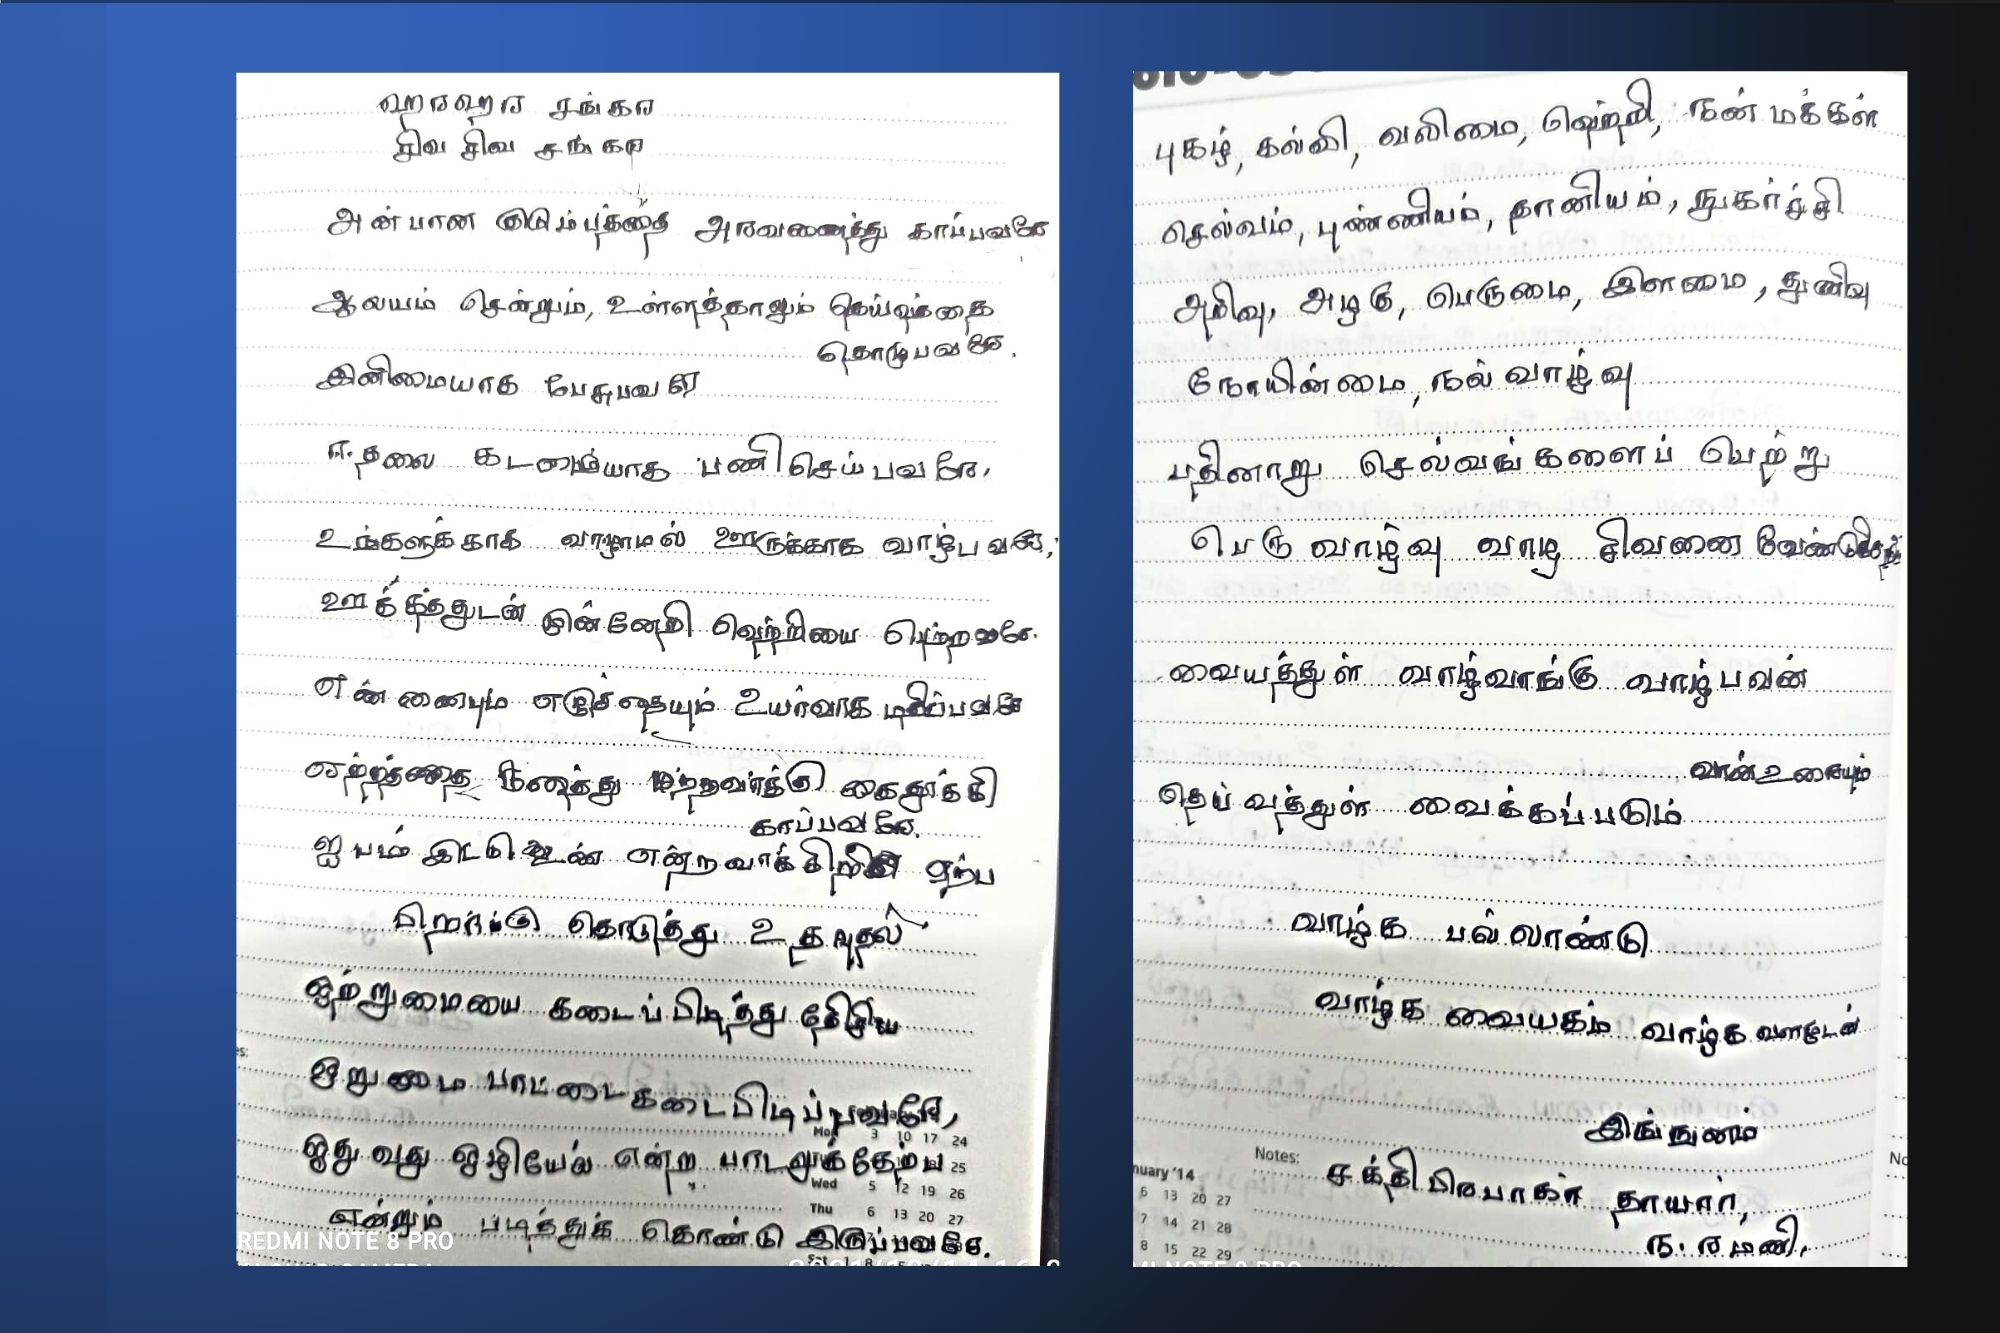 ஹரஹர சங்கர
சிவ சிவ சங்கர
அன்பான குடும்பத்தை அரவணைத்து காப்பவரே
ஆலயம் சென்றும், உள்ளத்தாலும் தெய்வத்தை
தொழுபவரே.
இனிமையாக பேசுபவரே
ஈதலை கடமையாக பணி செய்பவரே.
உங்களுக்காக வாழாமல் ஊருக்காக வாழ்பவரே,
ஊக்கத்துடன் முன்னேறி வெற்றியை பெற்றவரே.
எண்ணையும் எழுத்தையும் உயர்வாக மதிப்பவரே
கைதூக்கி
காப்பவரே.
ஐயம் இட்டு உண் என்ற ஏற்ப
பிறர்க்கு கொடுத்து உதவுதல்
ஒற்றுமையை கடைப்பிடித்து
ஒறுமை பாட்டை கடைபிடிப்பவரே,
ஓதுவது ஒழியேல் என்ற
என்றும் படித்துக் கொண்டு இருப்பவரே.
REDMI NOTE 8 PRO
Mon 3 10 17 24
25
Wed 5 12 19 26
Thu 6 13 20 27
புகழ், கல்வி, வலிமை, வெற்றி, நன் மக்கள்
செல்வம், புண்ணியம், தானியம், நுகர்ச்சி
அறிவு, அழகு, பெருமை, இளமை, துணிவு
நோயின்மை, நல் வாழ்வு
பதினாறு செல்வங்களைப் பெற்று
பெரு வாழ்வு வாழ சிவனை
வையத்துள் வாழ்வாங்கு வாழ்பவன்
வான் உறையும்
தெய்வத்துள் வைக்கப்படும்
வாழ்க பல்லாண்டு
வாழ்க வையகம் வாழ்க வளமுடன்
இங்ஙனம்
Notes:
சக்திபிரபாகர் தாயார்,
ந. ரமணி.
nuary '14
6 13 20 27
7 14 21 28
8 15 22 29